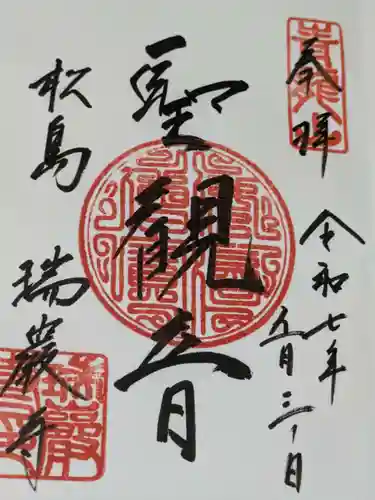 奉拝
令和七年
五月三日
聖観音
松島
瑞巌寺
青龍山